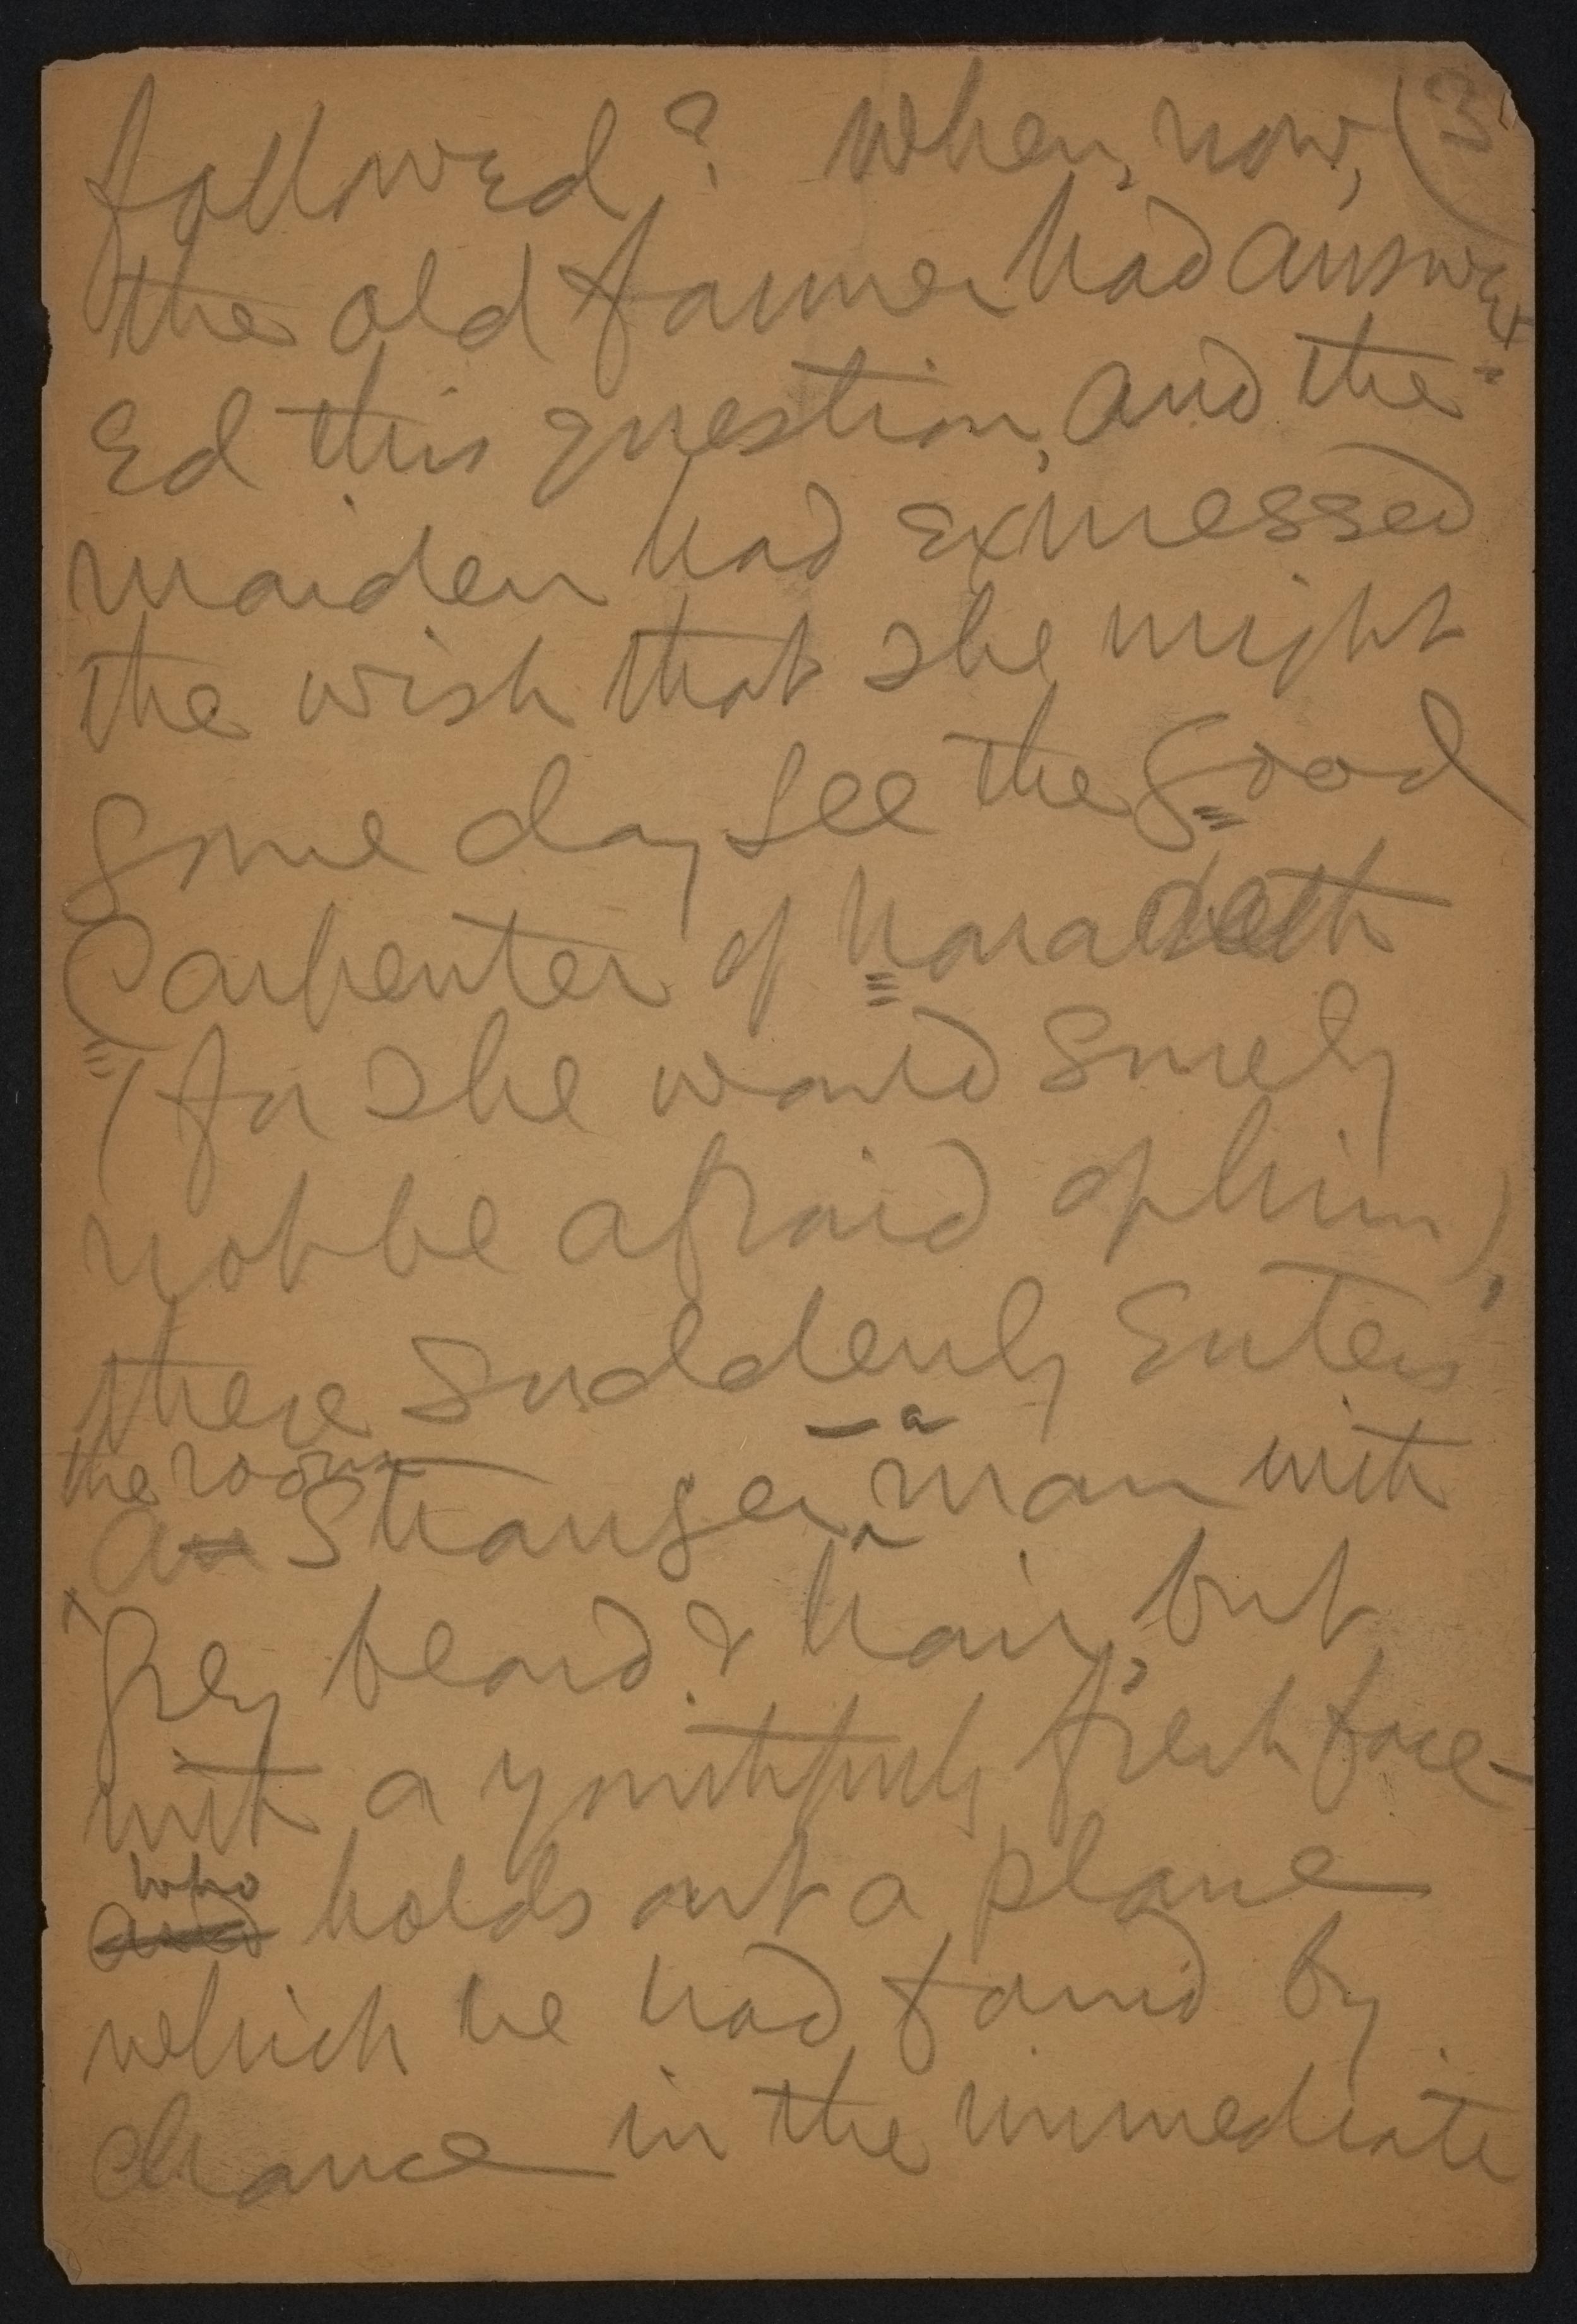 followed? When, now, (3
the old farmer had answer-
ed this question, and the
maiden had expressed
the wish that she might
some day see the Good
Carpenter of Nazareth
(for she would surely
not be afraid of him),
there suddenly enters
the room
a stranger, — a man with
grey beard & hair, but
with a youthfully fresh face—
who
and holds out a plane
which he had found by
chance in the immediate